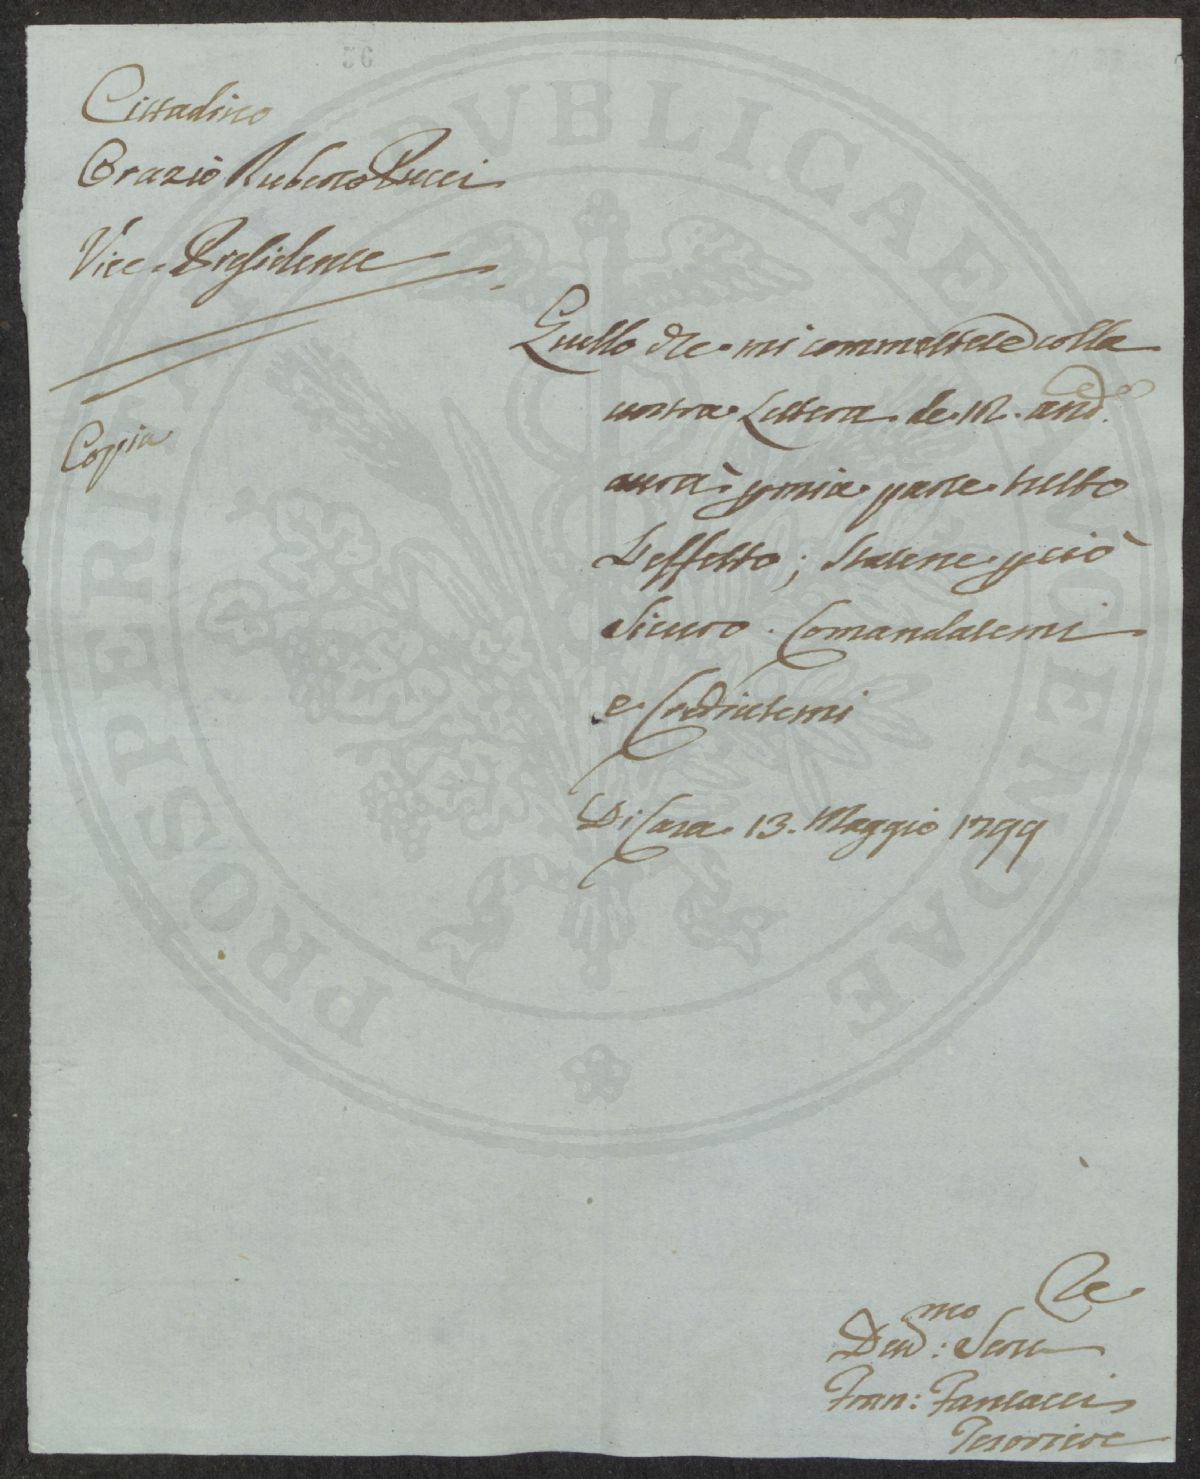 36
Cittadino
Orazio Ruberto Pucci
Vice-Presidente
Quello che mi commettete colla
vostra Lettera de 12. and.
avrà p mia parte tutto
L'effetto; Statene p ciò
Sicuro. Comandatemi
e Credietemi
Di Casa 13. Maggio 1799
Copia
Ded:mo Serv
Fran: Fantacci
Tesoriere
PROSPERITATI PVBLICAE AVGENDAE